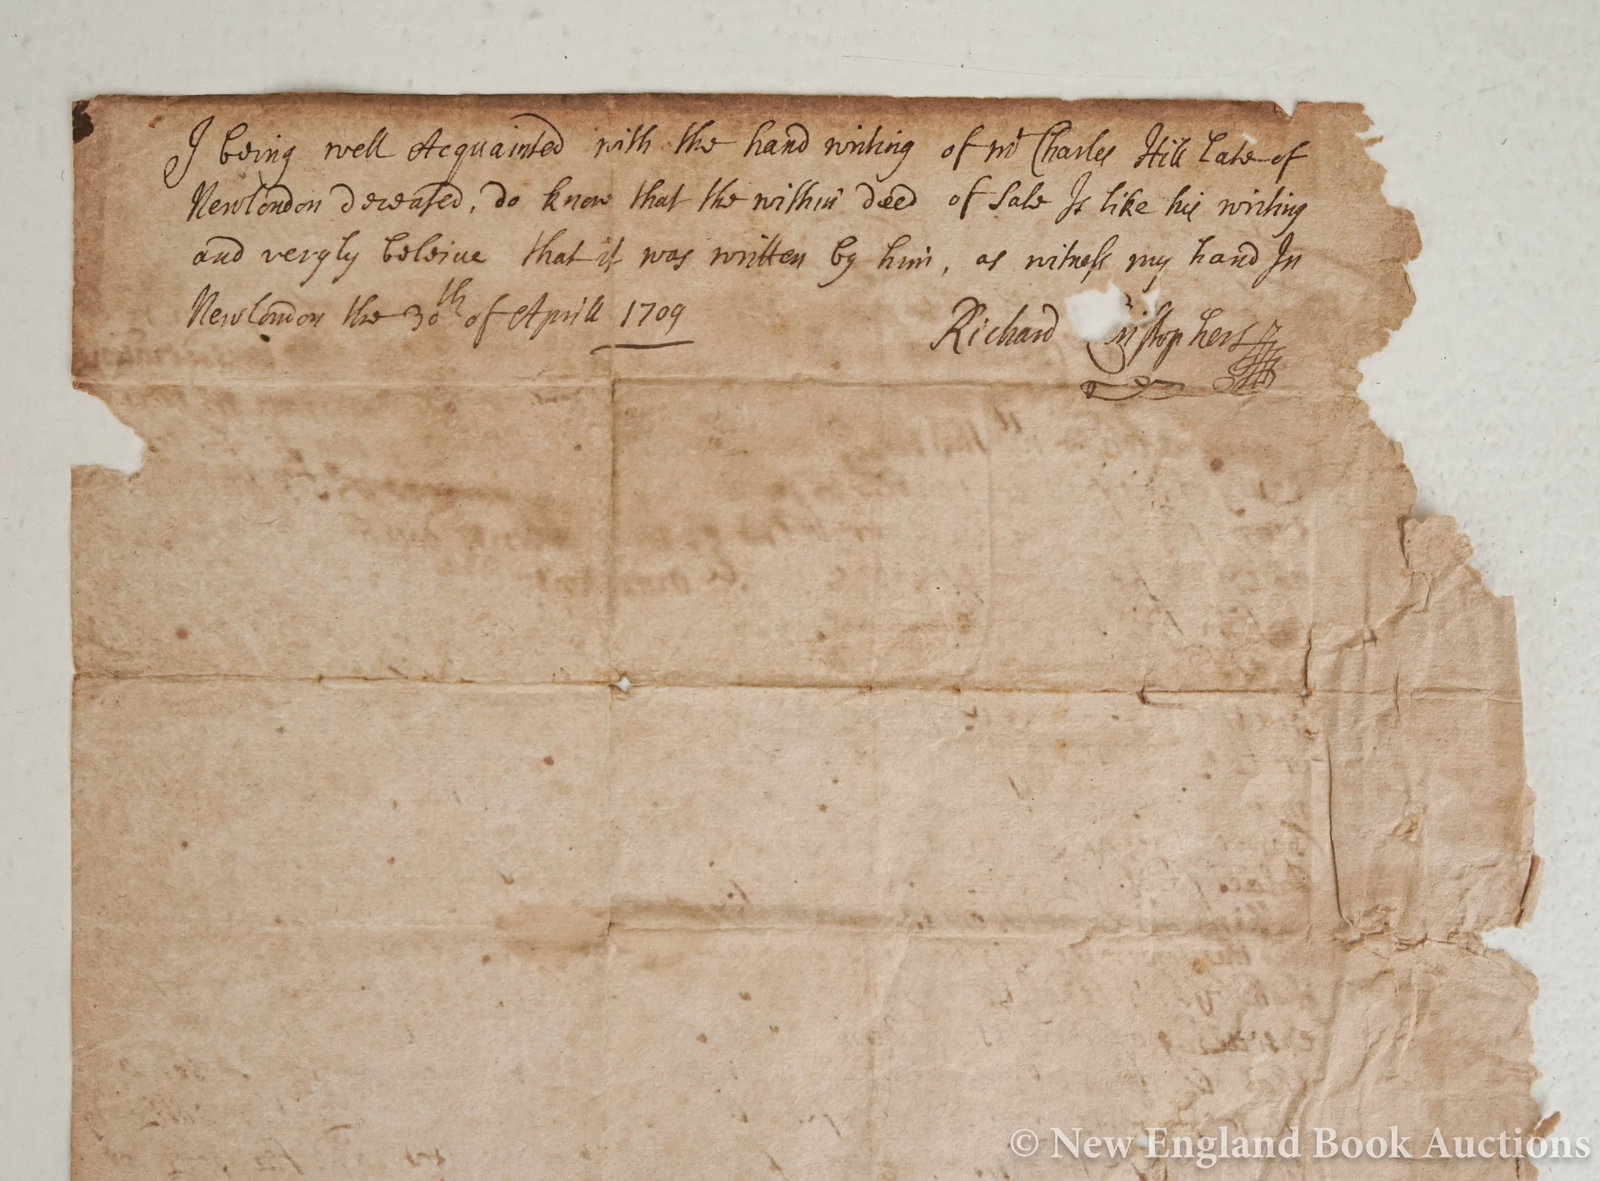 I being well Acquainted with the hand writing of mr Charles Hill Late of
Newlondon deceased, do know that the within deed of Sale Is like his writing
and veryly beleive that it was written by him, as witness my hand In
Newlondon the 30th of Aprill 1709
Richard ristophers
© New England Book Auctions